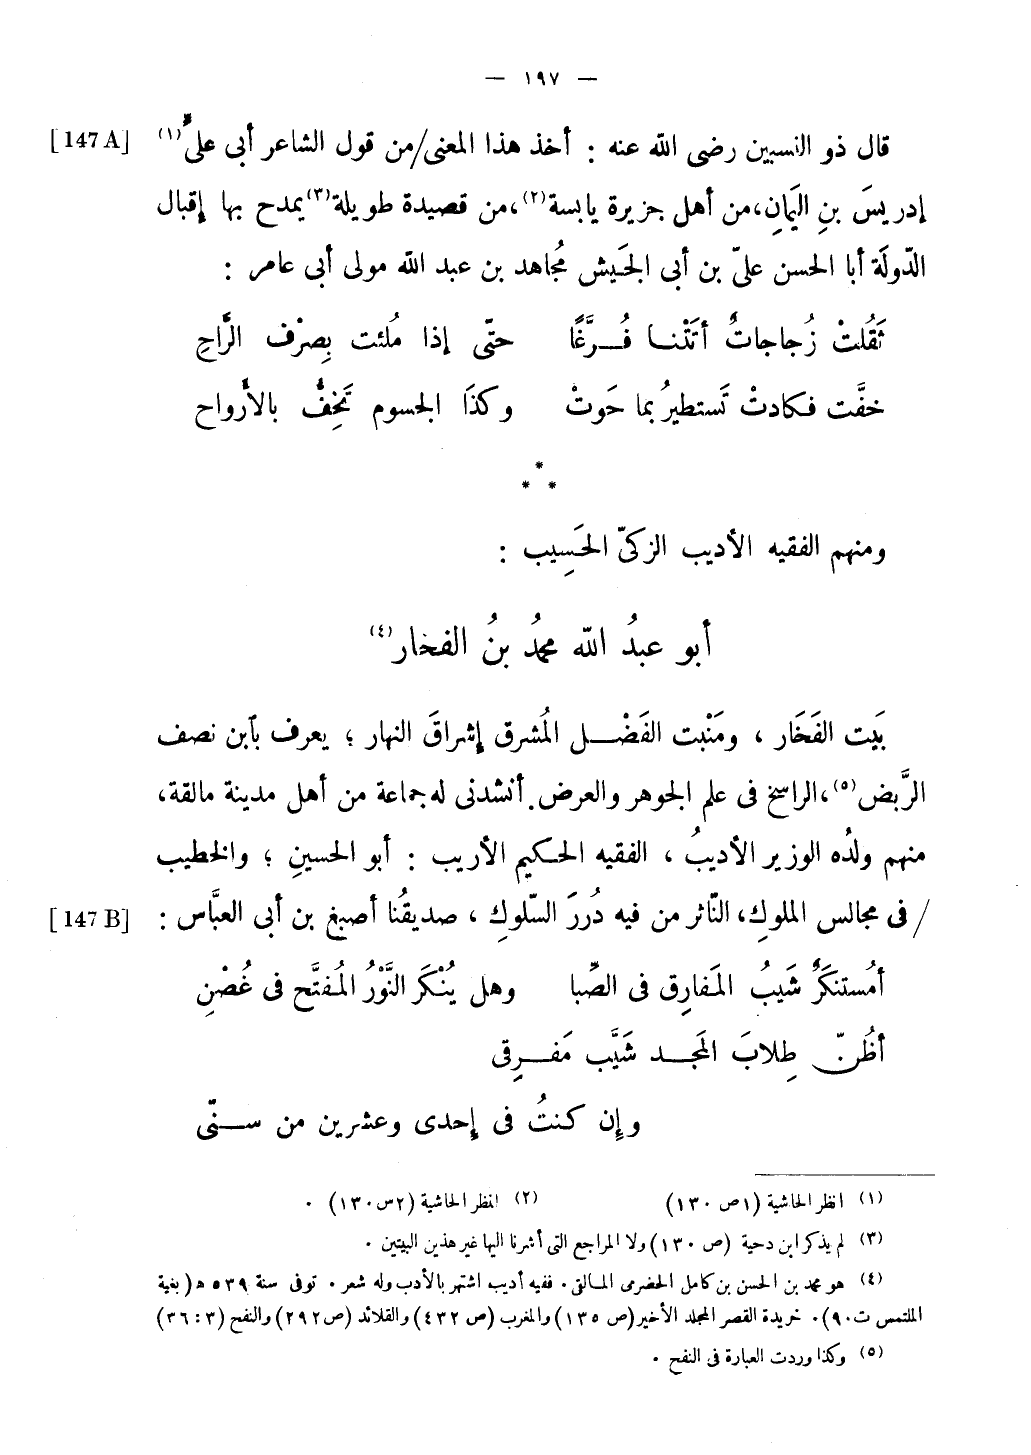 — ١٩٧ —
[147 A] قال ذو النسبين رضى الله عنه : أخذ هذا المعنى/من قول الشاعر أبى علىّ(١)
إدريسَ بنِ اليَمانِ،من أهل جزيرة يابسة(٢)،من قصيدة طويلة(٣)يمدح بها إقبال
الدّولَة أبا الحسن علىّ بن أبى الجَيش مُجاهد بن عبد الله مولى أبى عامر :
ثَقُلتْ زُجاجاتٌ أتَتْنا فُرَّغًا حتّى إذا مُلئت بِصرْف الرَّاحِ
خفَّت فكادتْ تَستطيرُ بما حَوتْ وكذَا الجسوم تَخِفُّ بالأرواح
* * *
ومنهم الفقيه الأديب الزكىّ الحَسِيب :
أبو عبدُ الله محمدُ بنُ الفخار(٤)
بَيت الفَخَار ، ومَنْبت الفَضْل المُشرق إشراقَ النهار ؛ يعرف بٱبن نصف
الرَّبض(٥)،الراسخ فى علم الجوهر والعرض. أنشدنى له جماعة من أهل مدينة مالقة،
منهم ولدُه الوزير الأديبُ ، الفقيه الحكيم الأريب : أبو الحسينِ ؛ والخطيب
[147 B] / فى مجالس الملوكِ، النّاثر من فيه دُررَ السّلوكِ ، صديقُنا أصبغ بن أبى العبَّاس :
أمُستنكَرٌ شَيبُ المَفارِق فى الصِّبا وهل يُنْكَر النَّوْرُ المُفتَّح فى غُصْنِ
أظُنّ طِلابَ المَجد شَيَّب مَفرِقى
وإن كنتُ فى إحدى وعشرين من سنّى
(١) انظر الحاشية (١ص ١٣٠) (٢) انظر الحاشية (٢س١٣٠) .
(٣) لم يذكر ابن دحية (ص ١٣٠)ولا المراجع التى أشرنا اليها غير هذين البيتين .
(٤) هو محمد بن الحسن بن كامل الحضرمى المالقى . ففيه أديب اشتهر بالأدب وله شعر . توفى سنة ٥٣٩ ه( بغية
الملتمس ت٩٠). خريدة القصر المجلد الأخير(ص ١٣٥)والمغرب (ص ٤٣٢)والقلائد (ص٢٩٢)والنفح (٣:٣٦)
(٥) وكذا وردت العبارة فى النفح .